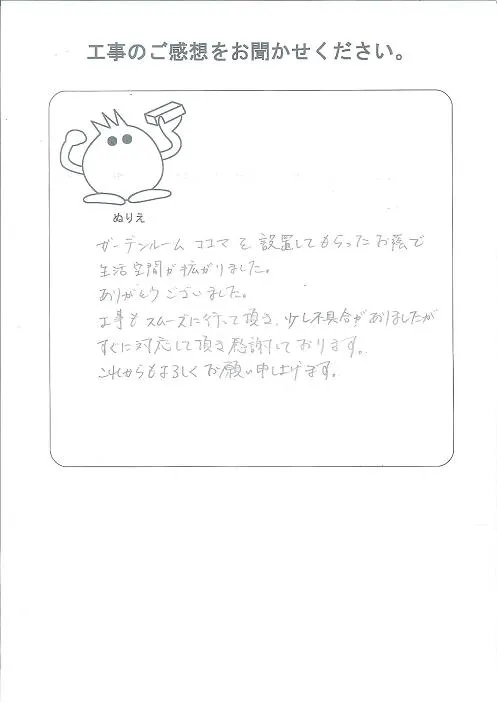 工事のご感想をお聞かせください。
ぬりえ
ガーデンルーム ココマ を 設置してもらったお蔭で
生活空間が拡がりました。
ありがとうございました。
工事も スムーズに行って頂き、少し不具合がありましたが
すぐに対応して頂き感謝しております。
これからもよろしくお願い申し上げます。